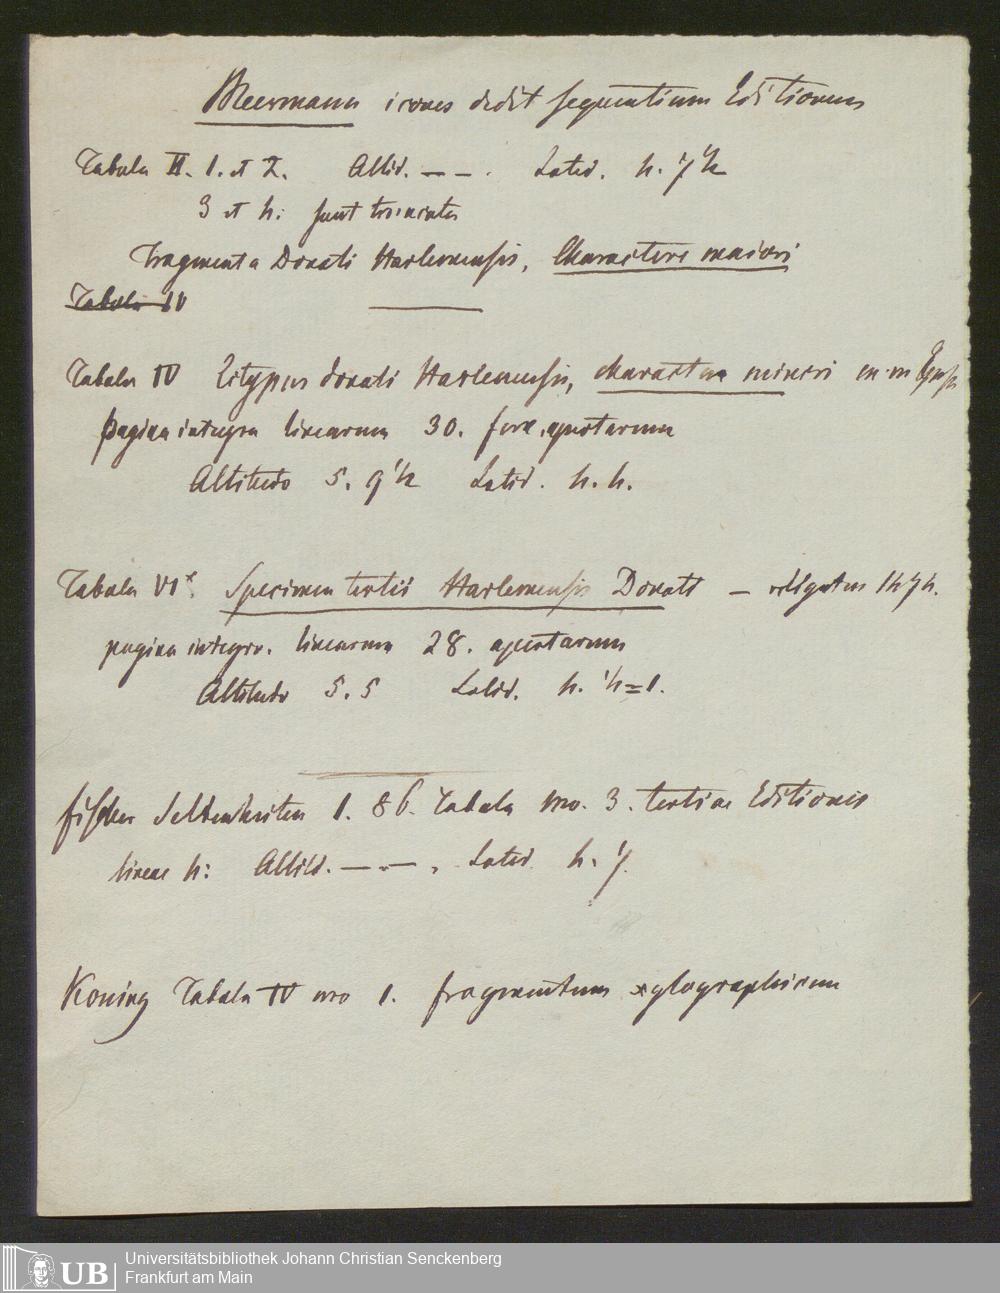 Meermann icones dedit sequentium Editionum
Tabula II. 1. et 2. Altid. — – . Latid. 4. 7 ½
3 et 4: sunt truncatae
Fragmenta Donati Harlemensis, Charactere maiori
Tabula IV
Tabula IV Ectypus donati Harlemensis, charactere minori
pagina integra linearum 30. apertarum
Altitudo 5. 9 ½ Latid. 4. 4.
Tabula VI* Specimen tertii Harlemensis Donati — religatus 1474.
pagina integra. linearum 28. apertarum
Altitudo 5. 5 Latid. 4. ½ = 1.
Fischer Seltenheiten 1. 86. Tabula nro. 3. tertiae Editionis
lineae 4: Altid. — . — . Latid. 4. ½.
Koning Tabula IV nro 1. fragmentum xylographicum
Universitätsbibliothek Johann Christian Senckenberg
Frankfurt am Main
UB